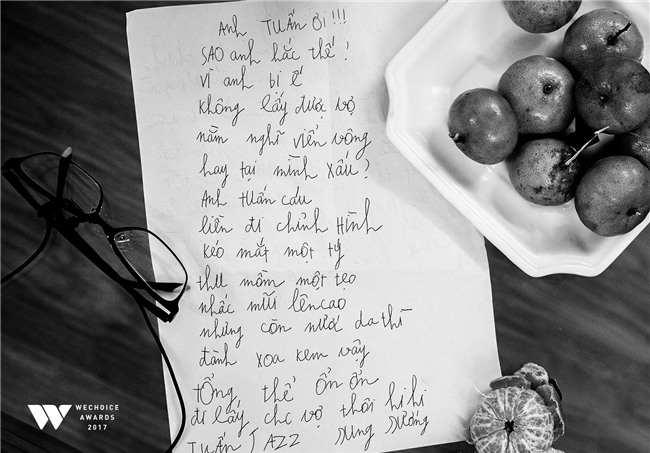 Anh TUẤN ƠI !!!
SAO anh hắc thế !
Vì anh bị ế
không lấy được vợ
nằm nghĩ viển vông
hay tại mình xấu ?
Anh tuấn cáu
liền đi chỉnh Hình
kéo mắt một tý
thu mồm một tẹo
nhấc mũi lên cao
nhưng còn nước da thì
đành xoa kem vậy
tổng thể ổn ổn
đi lấy vợ thôi hi hi
TUẤN JAZZ sung sướng
WECHOICE
AWARDS
2017